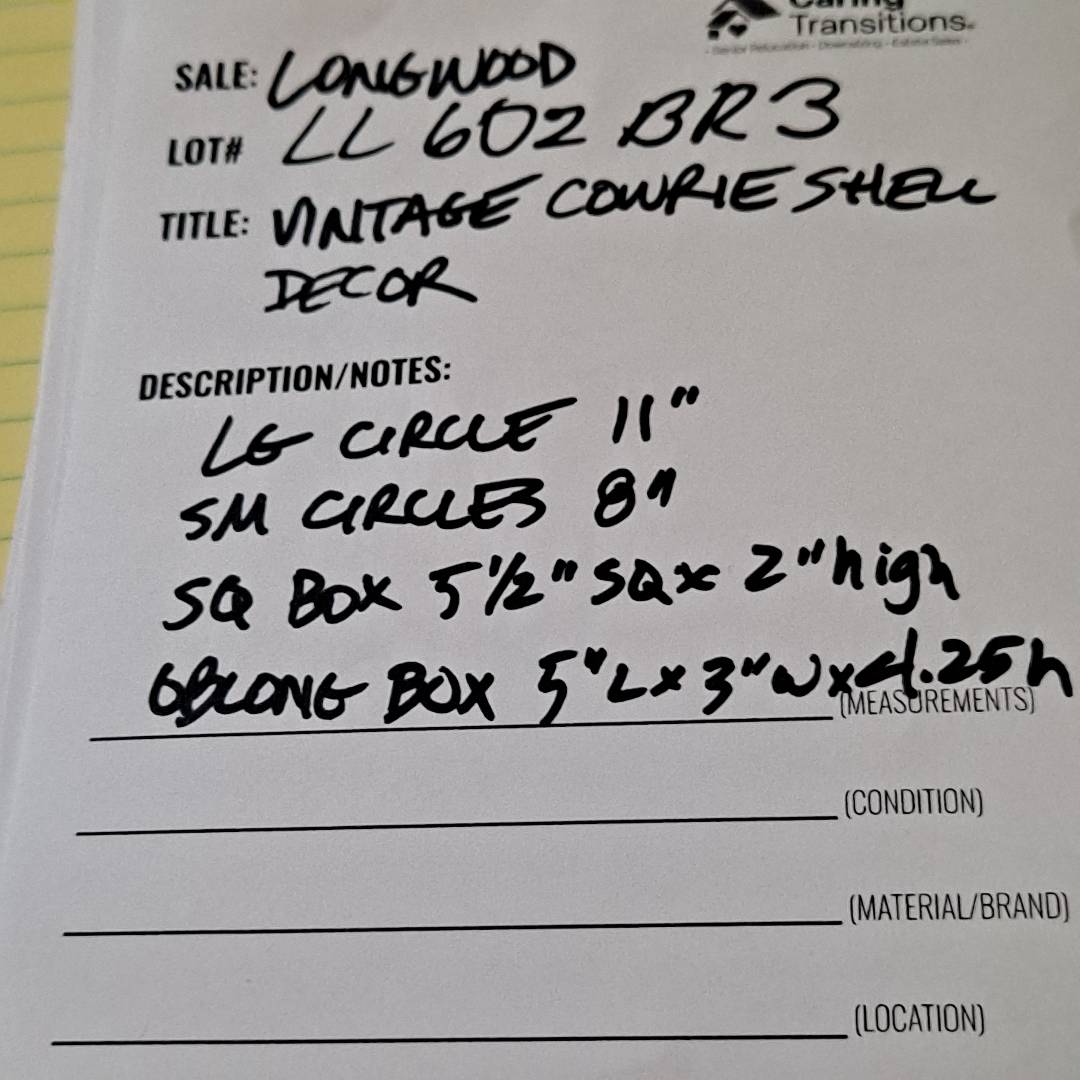 Caring
Transitions.
• Senior Relocation • Downsizing • Estate Sales •
SALE: LONGWOOD
LOT# LL 602 BR 3
TITLE: VINTAGE COWRIE SHELL
DECOR
DESCRIPTION/NOTES:
LG CIRCLE 11"
SM CIRCLES 8"
SQ BOX 5 1/2" SQ x 2" high
OBLONG BOX 5" L x 3" W x 4.25 h
(MEASUREMENTS)
(CONDITION)
(MATERIAL/BRAND)
(LOCATION)